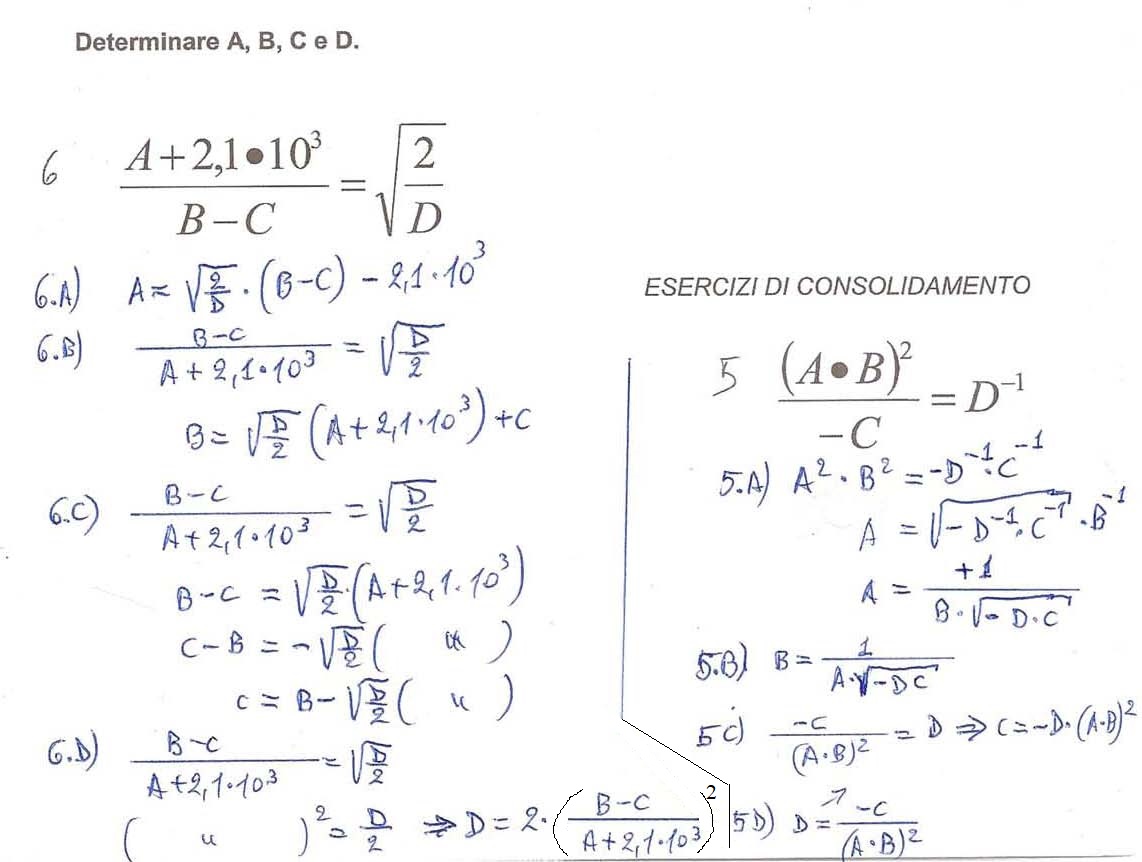 Determinare A, B, C e D.
6 (A+2,1•10³)/(B−C) = √(2/D)
6.A) A = √(2/D) · (B−C) − 2,1·10³
6.B) (B−C)/(A+2,1·10³) = √(D/2)
B = √(D/2) (A+2,1·10³) + C
6.C) (B−C)/(A+2,1·10³) = √(D/2)
B−C = √(D/2)·(A+2,1·10³)
C−B = −√(D/2) ( " )
C = B−√(D/2) ( " )
6.D) (B−C)/(A+2,1·10³) = √(D/2)
( " )² = D/2 ⇒ D = 2·((B−C)/(A+2,1·10³))²
ESERCIZI DI CONSOLIDAMENTO
5 (A•B)²/(−C) = D⁻¹
5.A) A²·B² = −D⁻¹·C⁻¹
A = √(−D⁻¹·C⁻¹)·B⁻¹
A = +1/(B·√(−D·C))
5.B) B = 1/(A·√(−DC))
5C) −C/(A·B)² = D ⇒ C = −D·(A·B)²
5D) D = −C/(A·B)²